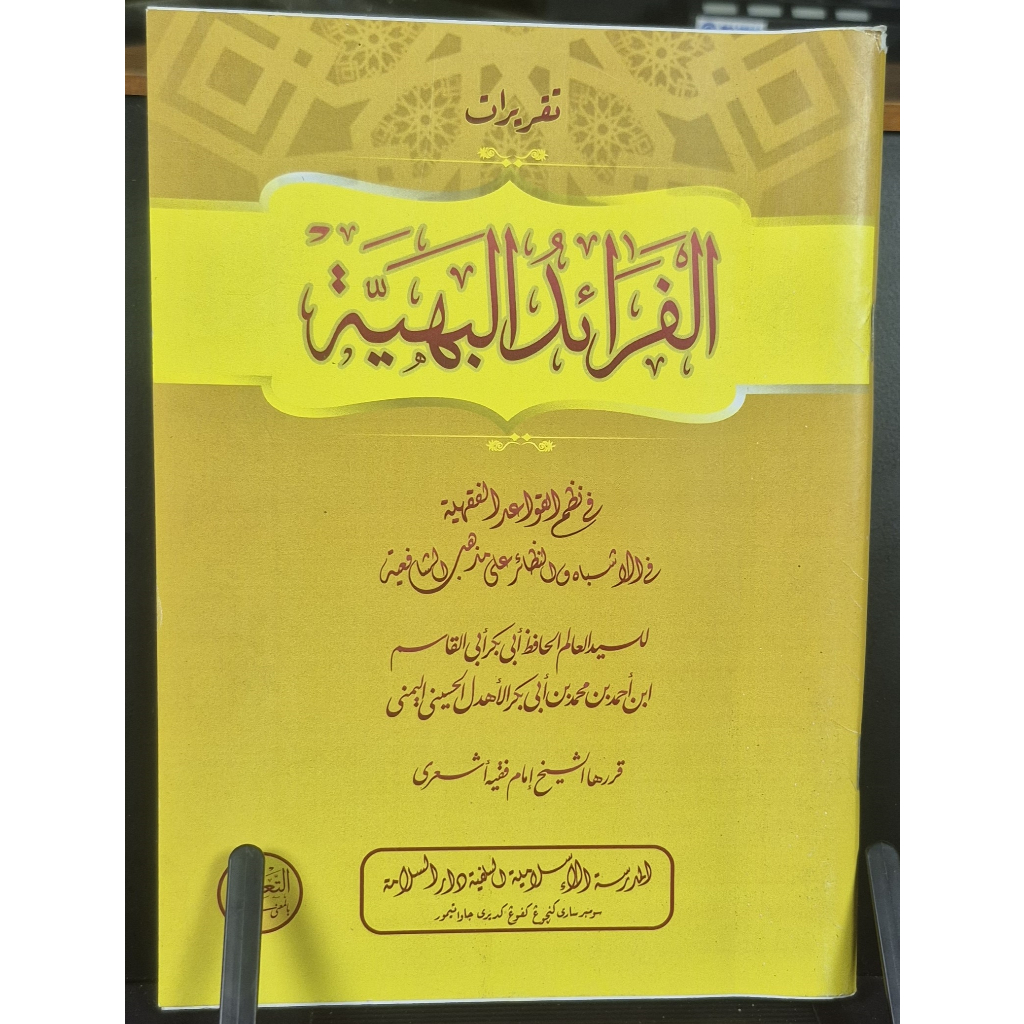 تقريرات
الفَرَائدُ البَهيَّة
في نظم القواعد الفقهية
في الاشباه والنظائر على مذهب الشافعية
للسيد العالم الحافظ أبي بكر أبي القاسم
ابن أحمد بن محمد بن أبي بكر الأهدل الحسيني اليمني
قررها الشيخ إمام فقيه أشعري
المدرسة الإسلامية السلفية دار السلامة
سومبر ساري كنچوڠ كفوڠ كديري جاوا تيمور